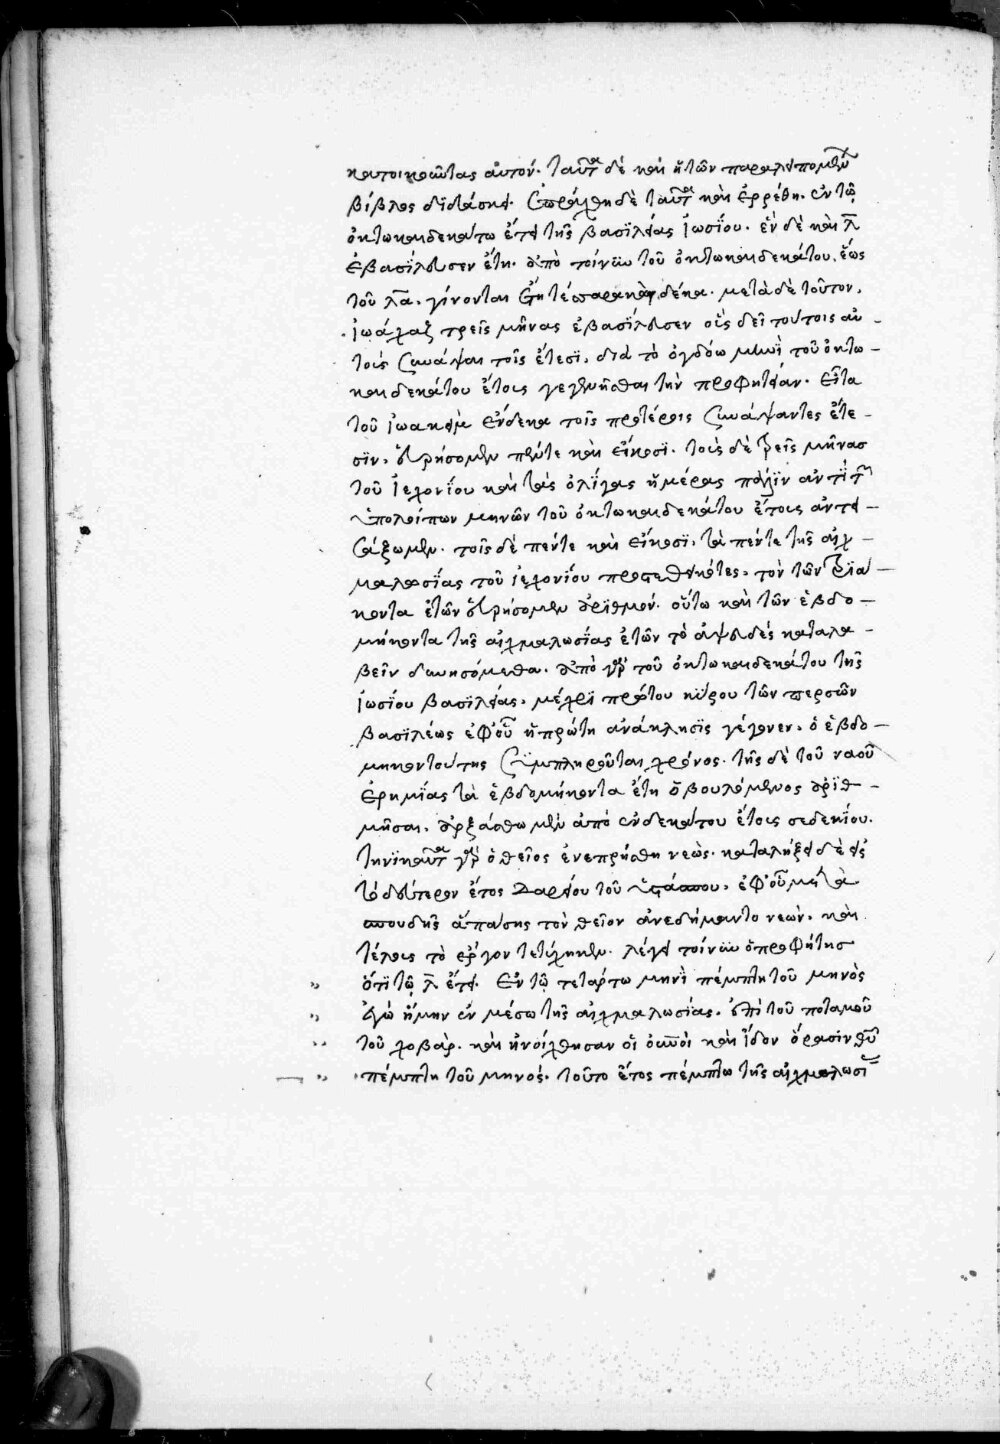 κατοικοῦντας αὐτόν. ταῦτα δὲ καὶ ἡ τῶν παραλειπομένων
βίβλος διδάσκει. ἐπράχθη δὲ ταῦτα καὶ ἐρρέθη. ἐν τῷ
ὀκτωκαιδεκάτω ἔτει τῆς βασιλείας ἰωσίου. ἓν δὲ καὶ λ̅
ἐβασίλευσεν ἔτη. ἀπὸ τοίνυν τοῦ ὀκτωκαιδεκάτου, ἕως
τοῦ λ̅α̅. γίνονται ἔτη τέσσαρα καὶ δέκα. μετὰ δὲ τοῦτον,
ἰωάχαζ τρεῖς μῆνας ἐβασίλευσεν οὓς δεῖ τούτοις αὐ-
τοὺς συνάψαι τοῖς ἔτεσι, διὰ τὸ ὀγδόω μηνὶ τοῦ ὀκτω-
καιδεκάτου ἔτους γεγενῆσθαι τὴν προφητείαν. εἶτα
τοῦ ἰωακεὶμ ἕνδεκα τοῖς προτέροις συνάψαντες ἔτε-
σιν, εὑρήσομεν πέντε καὶ εἴκοσι. τοὺς δὲ τρεῖς μῆνας
τοῦ ἰεχονίου καὶ τὰς ὀλίγας ἡμέρας πάλιν ἀντὶ τῶν
ὑπολοίπων μηνῶν τοῦ ὀκτωκαιδεκάτου ἔτους ἀντι-
τάξωμεν. τοῖς δὲ πέντε καὶ εἴκοσι, τὰ πέντε τῆς αἰχ-
μαλωσίας τοῦ ἰεχονίου προστεθεικότες, τὸν τῶν τριά-
κοντα ἐτῶν εὑρήσομεν ἀριθμόν. οὕτω καὶ τῶν ἑβδο-
μήκοντα τῆς αἰχμαλωσίας ἐτῶν τὸ ἀψευδὲς καταλα-
βεῖν δυνησόμεθα. ἀπὸ γὰρ τοῦ ὀκτωκαιδεκάτου τῆς
ἰωσίου βασιλείας, μέχρι πρώτου κύρου τῶν περσῶν
βασιλέως ἐφ' οὗ ἡ πρώτη ἀνάκλησις γέγονεν, ὁ ἑβδο-
μηκοντούτης συμπληροῦται χρόνος. τῆς δὲ τοῦ ναοῦ
ἐρημίας τὰ ἑβδομήκοντα ἔτη ὁ βουλόμενος ἀριθ-
μῆσαι, ἀρξάσθω μὲν ἀπὸ ἑνδεκάτου ἔτους σεδεκίου.
τηνικαῦτα γὰρ ὁ θεῖος ἐνεπρήσθη νεώς. καταλήξει δὲ εἰς
τὸ δεύτερον ἔτος δαρείου τοῦ ὑστάσπου, ἐφ' οὗ μετὰ
σπουδῆς ἁπάσης τὸν θεῖον ἀνεδήμαντο νεών. καὶ
τέλους τὸ ἔργον τετύχηκεν. λέγει τοίνυν ὁ προφήτης
ὅτι τῷ λ̅ ἔτει. ἐν τῷ τετάρτω μηνὶ πέμπτη τοῦ μηνὸς
" ἐγὼ ἤμην ἐν μέσω τῆς αἰχμαλωσίας. ἐπὶ τοῦ ποταμοῦ
" τοῦ χοβάρ. καὶ ἠνοίχθησαν οἱ οὐνοὶ καὶ ἴδον ὅρασιν θ̅υ̅
" πέμπτη τοῦ μηνός. τοῦτο ἔτος πέμπτω τῆς αἰχμαλωσί